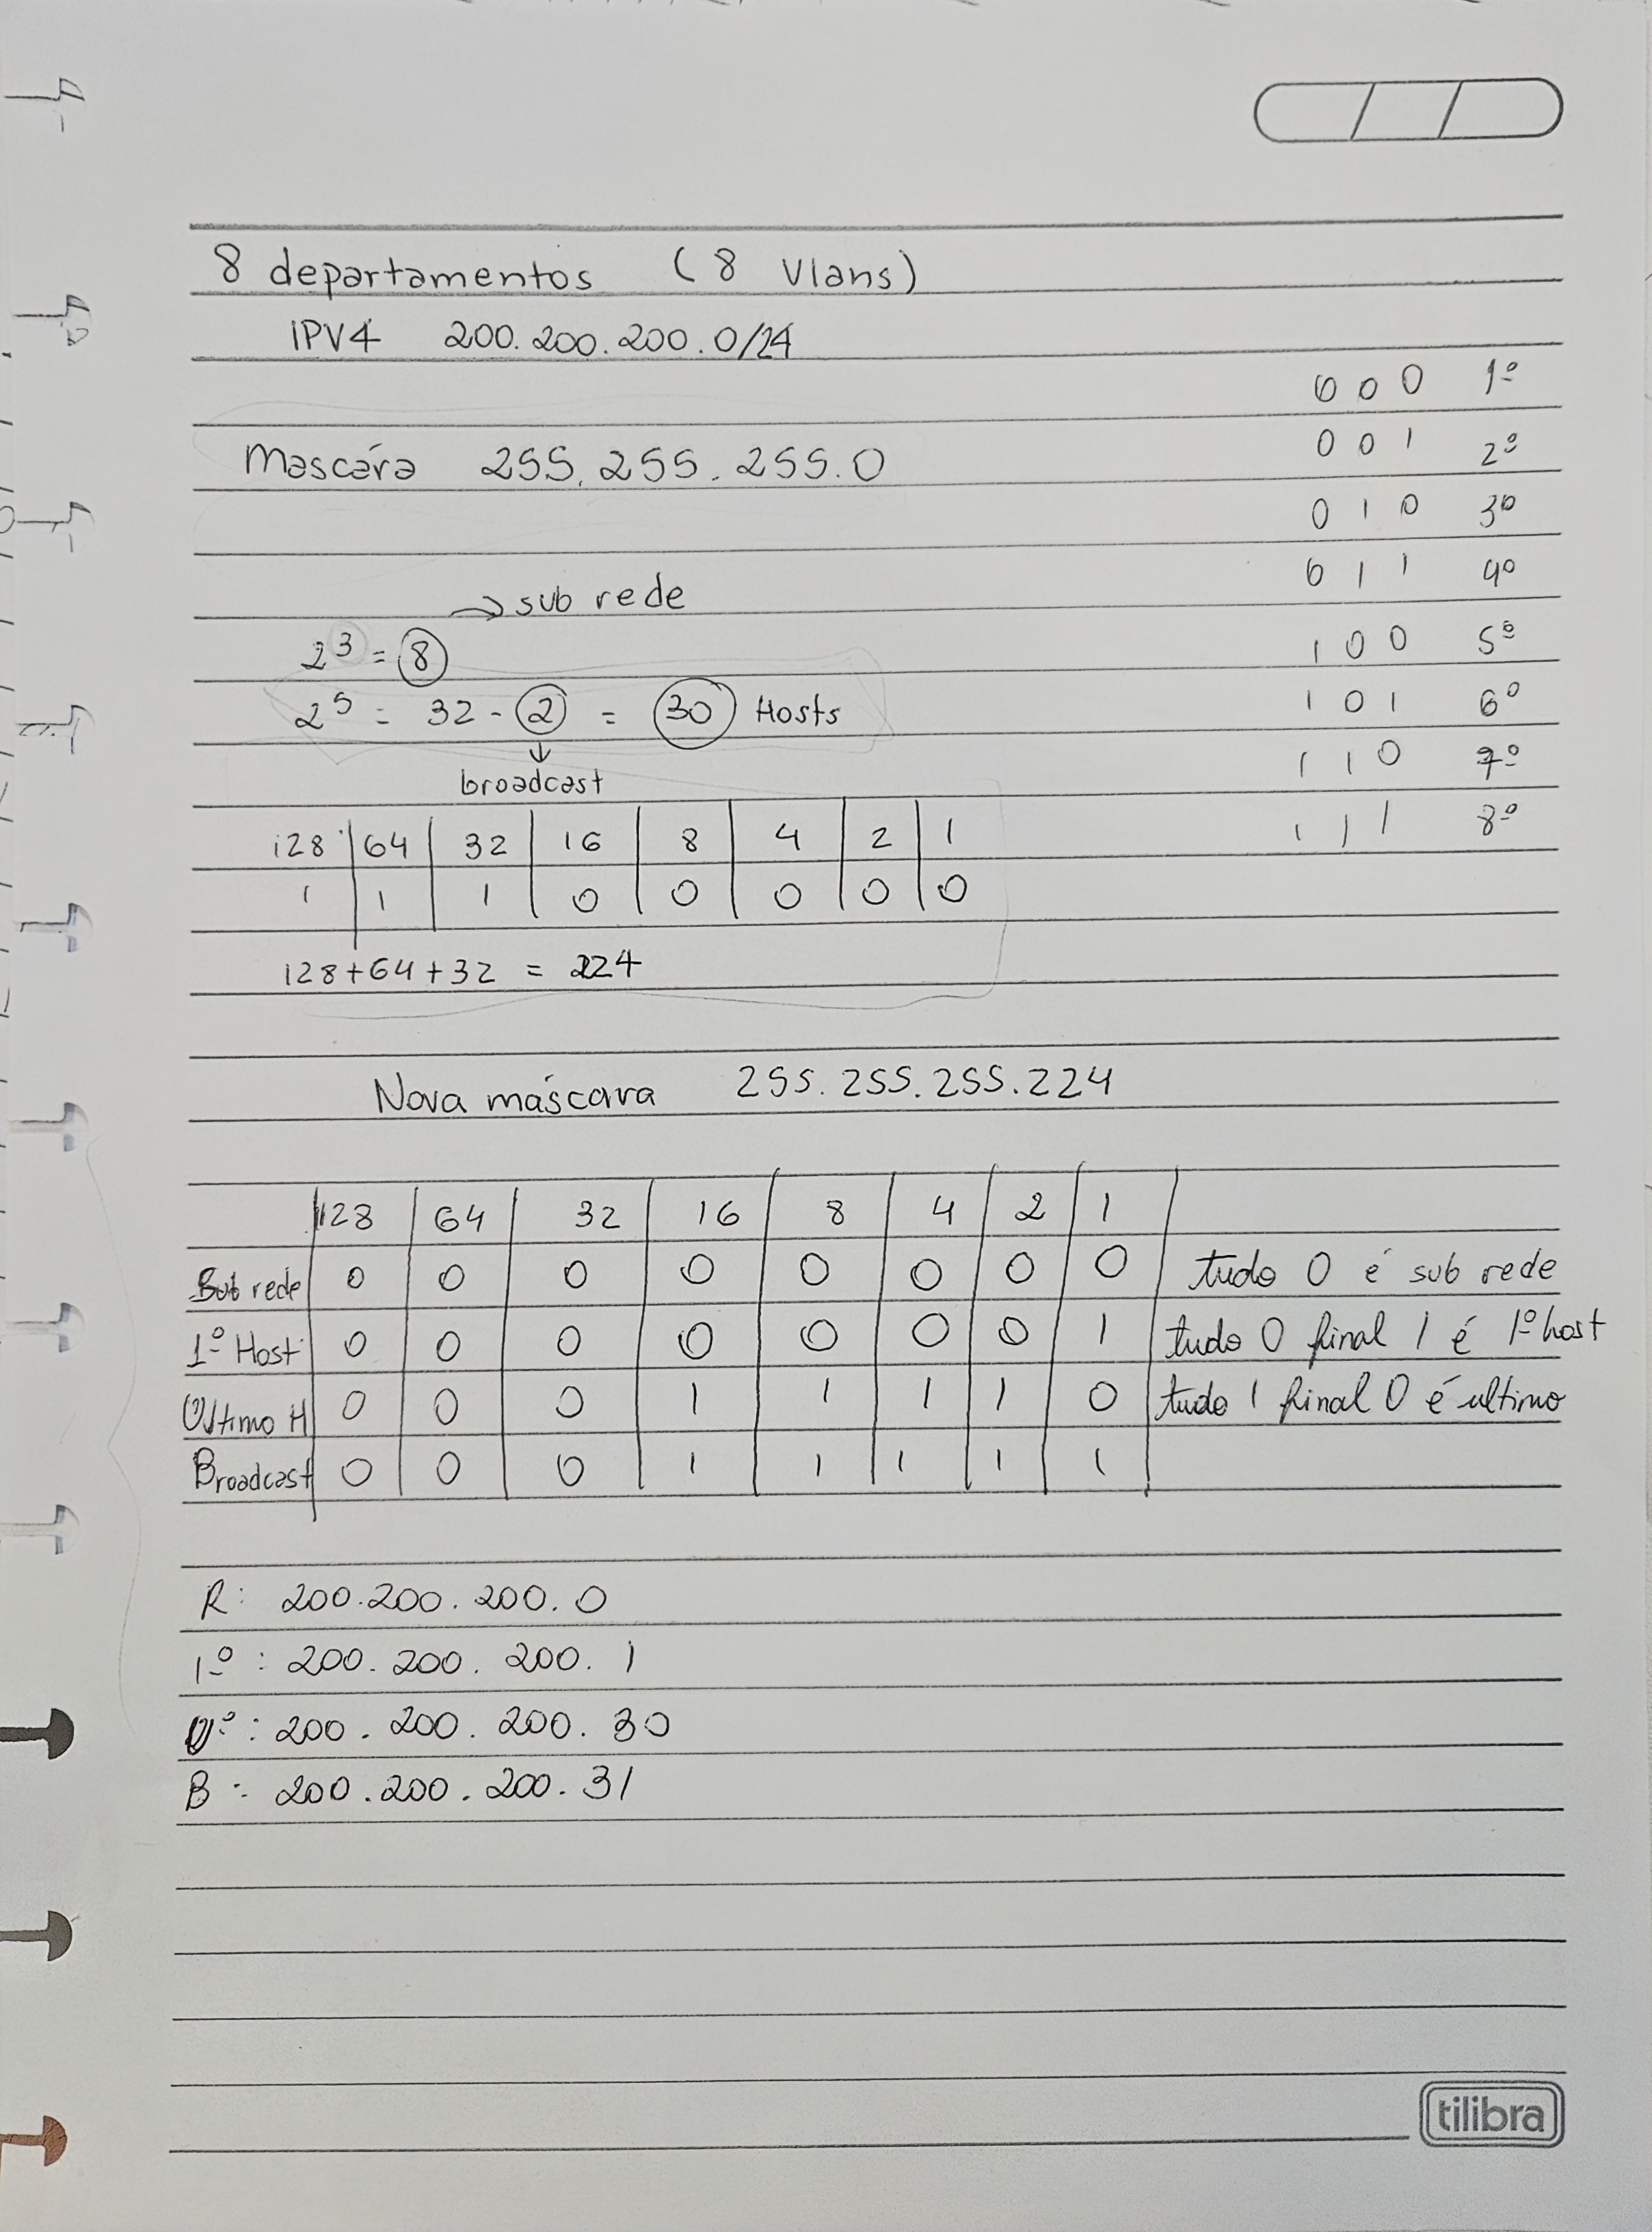 8 departamentos (8 Vlans)
IPV4 200.200.200.0/24
Mascára 255.255.255.0
→ sub rede
2³ = 8
2⁵ = 32 - 2 = 30 Hosts
↓
broadcast
128 64 32 16 8 4 2 1
1 1 1 0 0 0 0 0
128+64+32 = 224
0 0 0 1º
0 0 1 2º
0 1 0 3º
0 1 1 4º
1 0 0 5º
1 0 1 6º
1 1 0 7º
1 1 1 8º
Nova máscara 255.255.255.224
128 64 32 16 8 4 2 1
Sub rede 0 0 0 0 0 0 0 0 tudo 0 é sub rede
1º Host 0 0 0 0 0 0 0 1 tudo 0 final 1 é 1º host
Último H 0 0 0 1 1 1 1 0 tudo 1 final 0 é ultimo
Broadcast 0 0 0 1 1 1 1 1
R: 200.200.200.0
1º: 200.200.200.1
Uº: 200.200.200.30
B: 200.200.200.31
tilibra